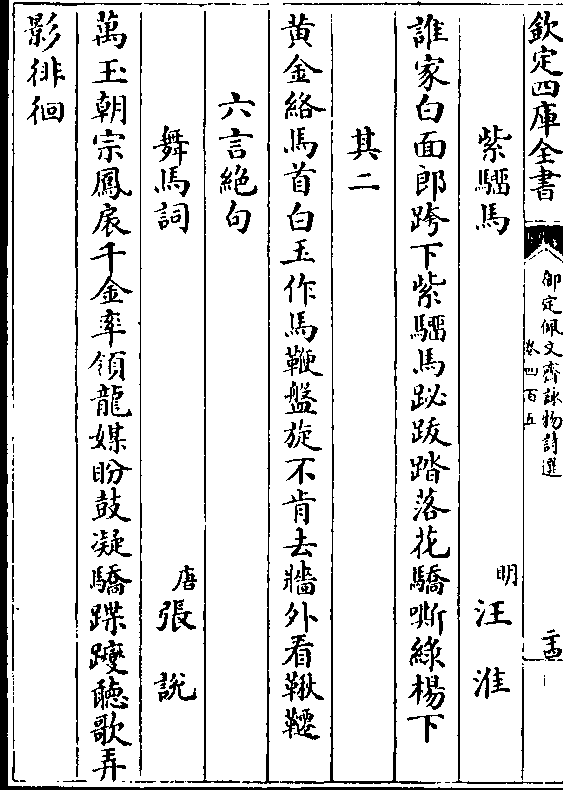 欽定四庫全書
御定佩文齋詠物詩選
卷四百五
紫騮馬
明 汪淮
誰家白面郎跨下紫騮馬跛踏落花驕嘶綠楊下
其二
黄金絡馬首白玉作馬鞭盤旋不肯去牆外看鞦韆
六言絶句
舞馬詞
唐 張說
萬玉朝宗鳳扆千金率領龍媒盼鼓凝驕蹀躞聽歌弄
影徘徊